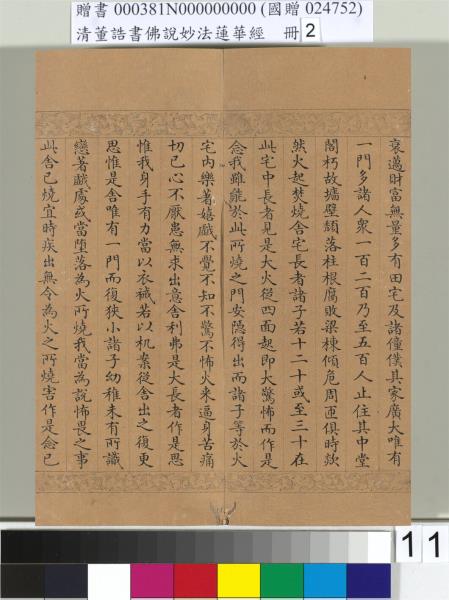 贈書 000381N000000000 (國贈 024752)
清董誥書佛說妙法蓮華經 冊 2
衰邁財富無量多有田宅及諸僮僕其家廣大唯有
一門多諸人眾一百二百乃至五百人止住其中堂
閣朽故墻壁頹落柱根腐敗梁棟傾危周匝俱時欻
然火起焚燒舍宅長者諸子若十二十或至三十在
此宅中長者見是大火從四面起即大驚怖而作是
念我雖能於此所燒之門安隱得出而諸子等於火
宅內樂著嬉戲不覺不知不驚不怖火來逼身苦痛
切己心不厭患無求出意舍利弗是大長者作是思
惟我身手有力當以衣裓若以机案從舍出之復更
思惟是舍唯有一門而復狹小諸子幼稚未有所識
戀著戲處或當墮落為火所燒我當為說怖畏之事
此舍已燒宜時疾出無令為火之所燒害作是念已
11